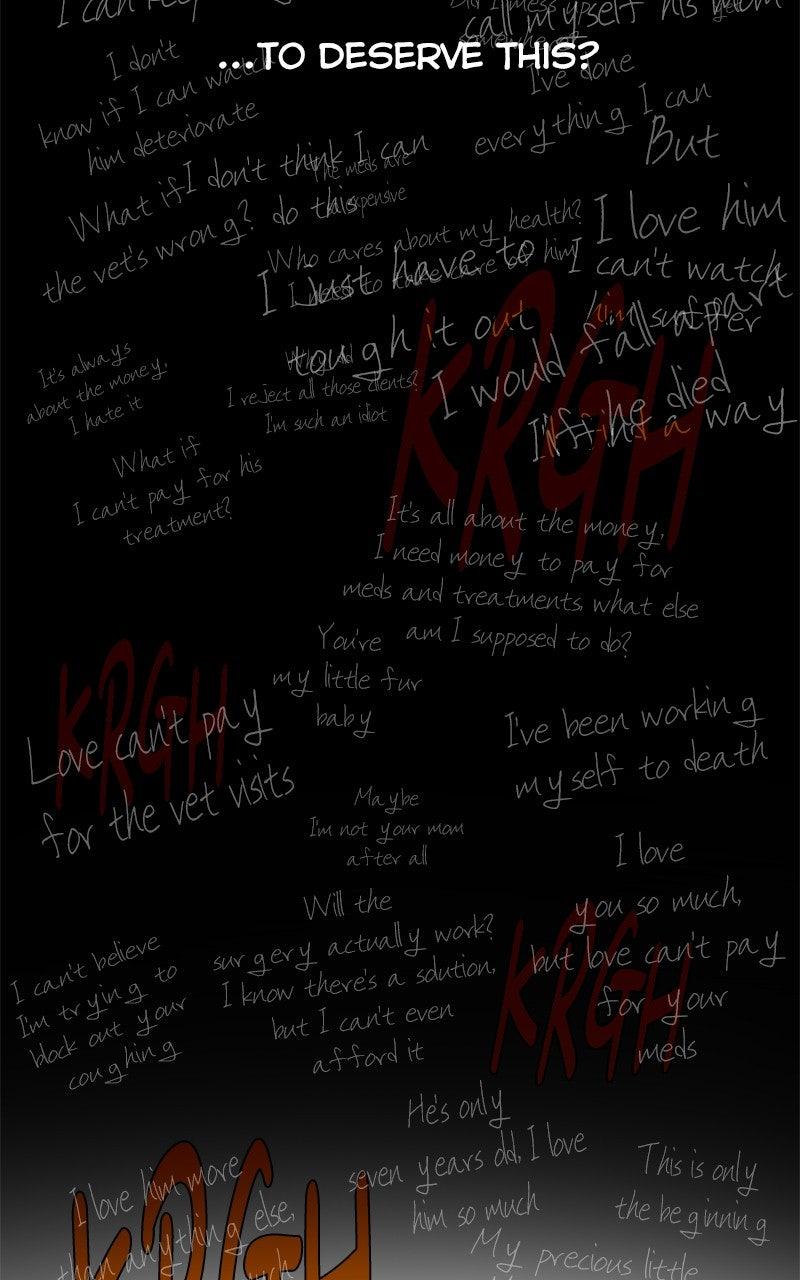 call myself his mom
...TO DESERVE THIS?
I don't
know if I can watch
him deteriorate
I've done
everything I can
But
I don't think I can
do this
The meds are
expensive
What if
the vet's wrong?
Who cares about my health?
I need to take care of him
I just have to
tough it out
I love him
I can't watch
him suffer
I would fall apart
if he died
I'll find a way
It's always
about the money,
I hate it
Why did
I reject all those clients?
I'm such an idiot
KRGH
What if
I can't pay for his
treatment?
It's all about the money,
I need money to pay for
meds and treatments, what else
am I supposed to do?
You're
my little fur
baby
KRGH
Love can't pay
for the vet visits
I've been working
myself to death
Maybe
I'm not your mom
after all
I love
you so much,
but love can't pay
for your
meds
KRGH
Will the
surgery actually work?
I know there's a solution,
but I can't even
afford it
I can't believe
I'm trying to
block out your
coughing
He's only
seven years old, I love
him so much
This is only
the beginning
KRGH
I love him more
than anything else,
My precious little